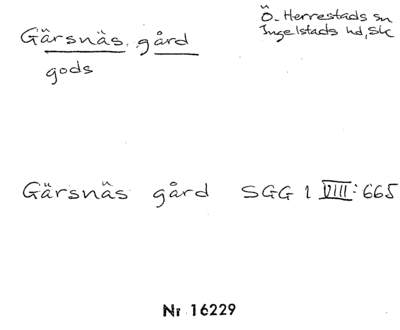 Gärsnäs gård
gods
Ö. Herrestads sn
Ingelstads hd, Sk
Gärsnäs gård SGG 1 VIII: 665
Nr 16229